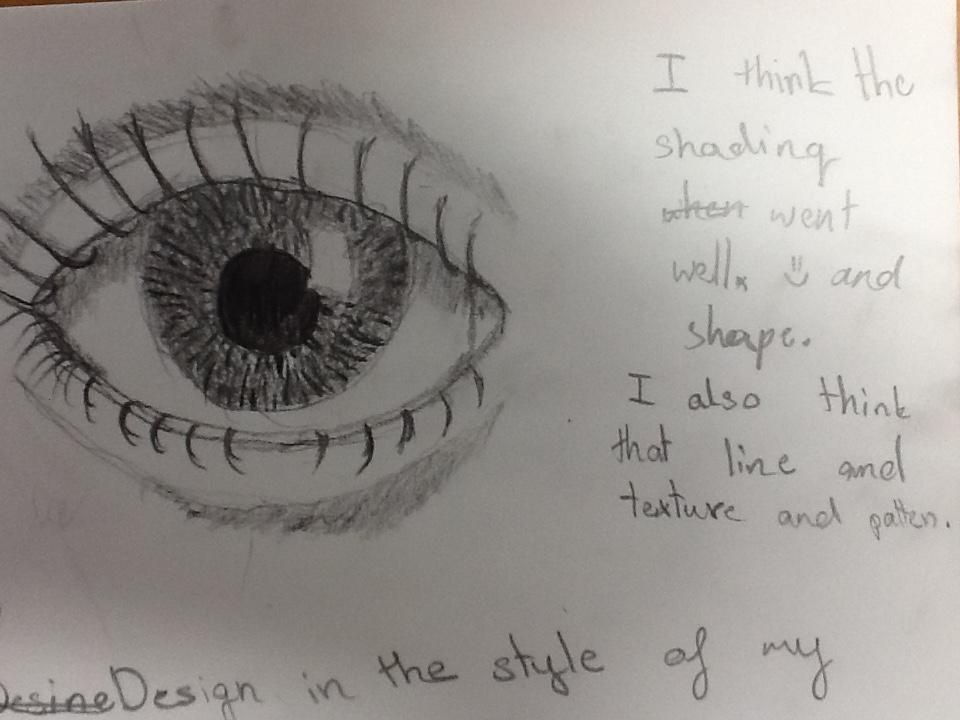 I think the
shading
when went
well. ü and
shape.
I also think
that line and
texture and patten.
Desine Design in the style of my